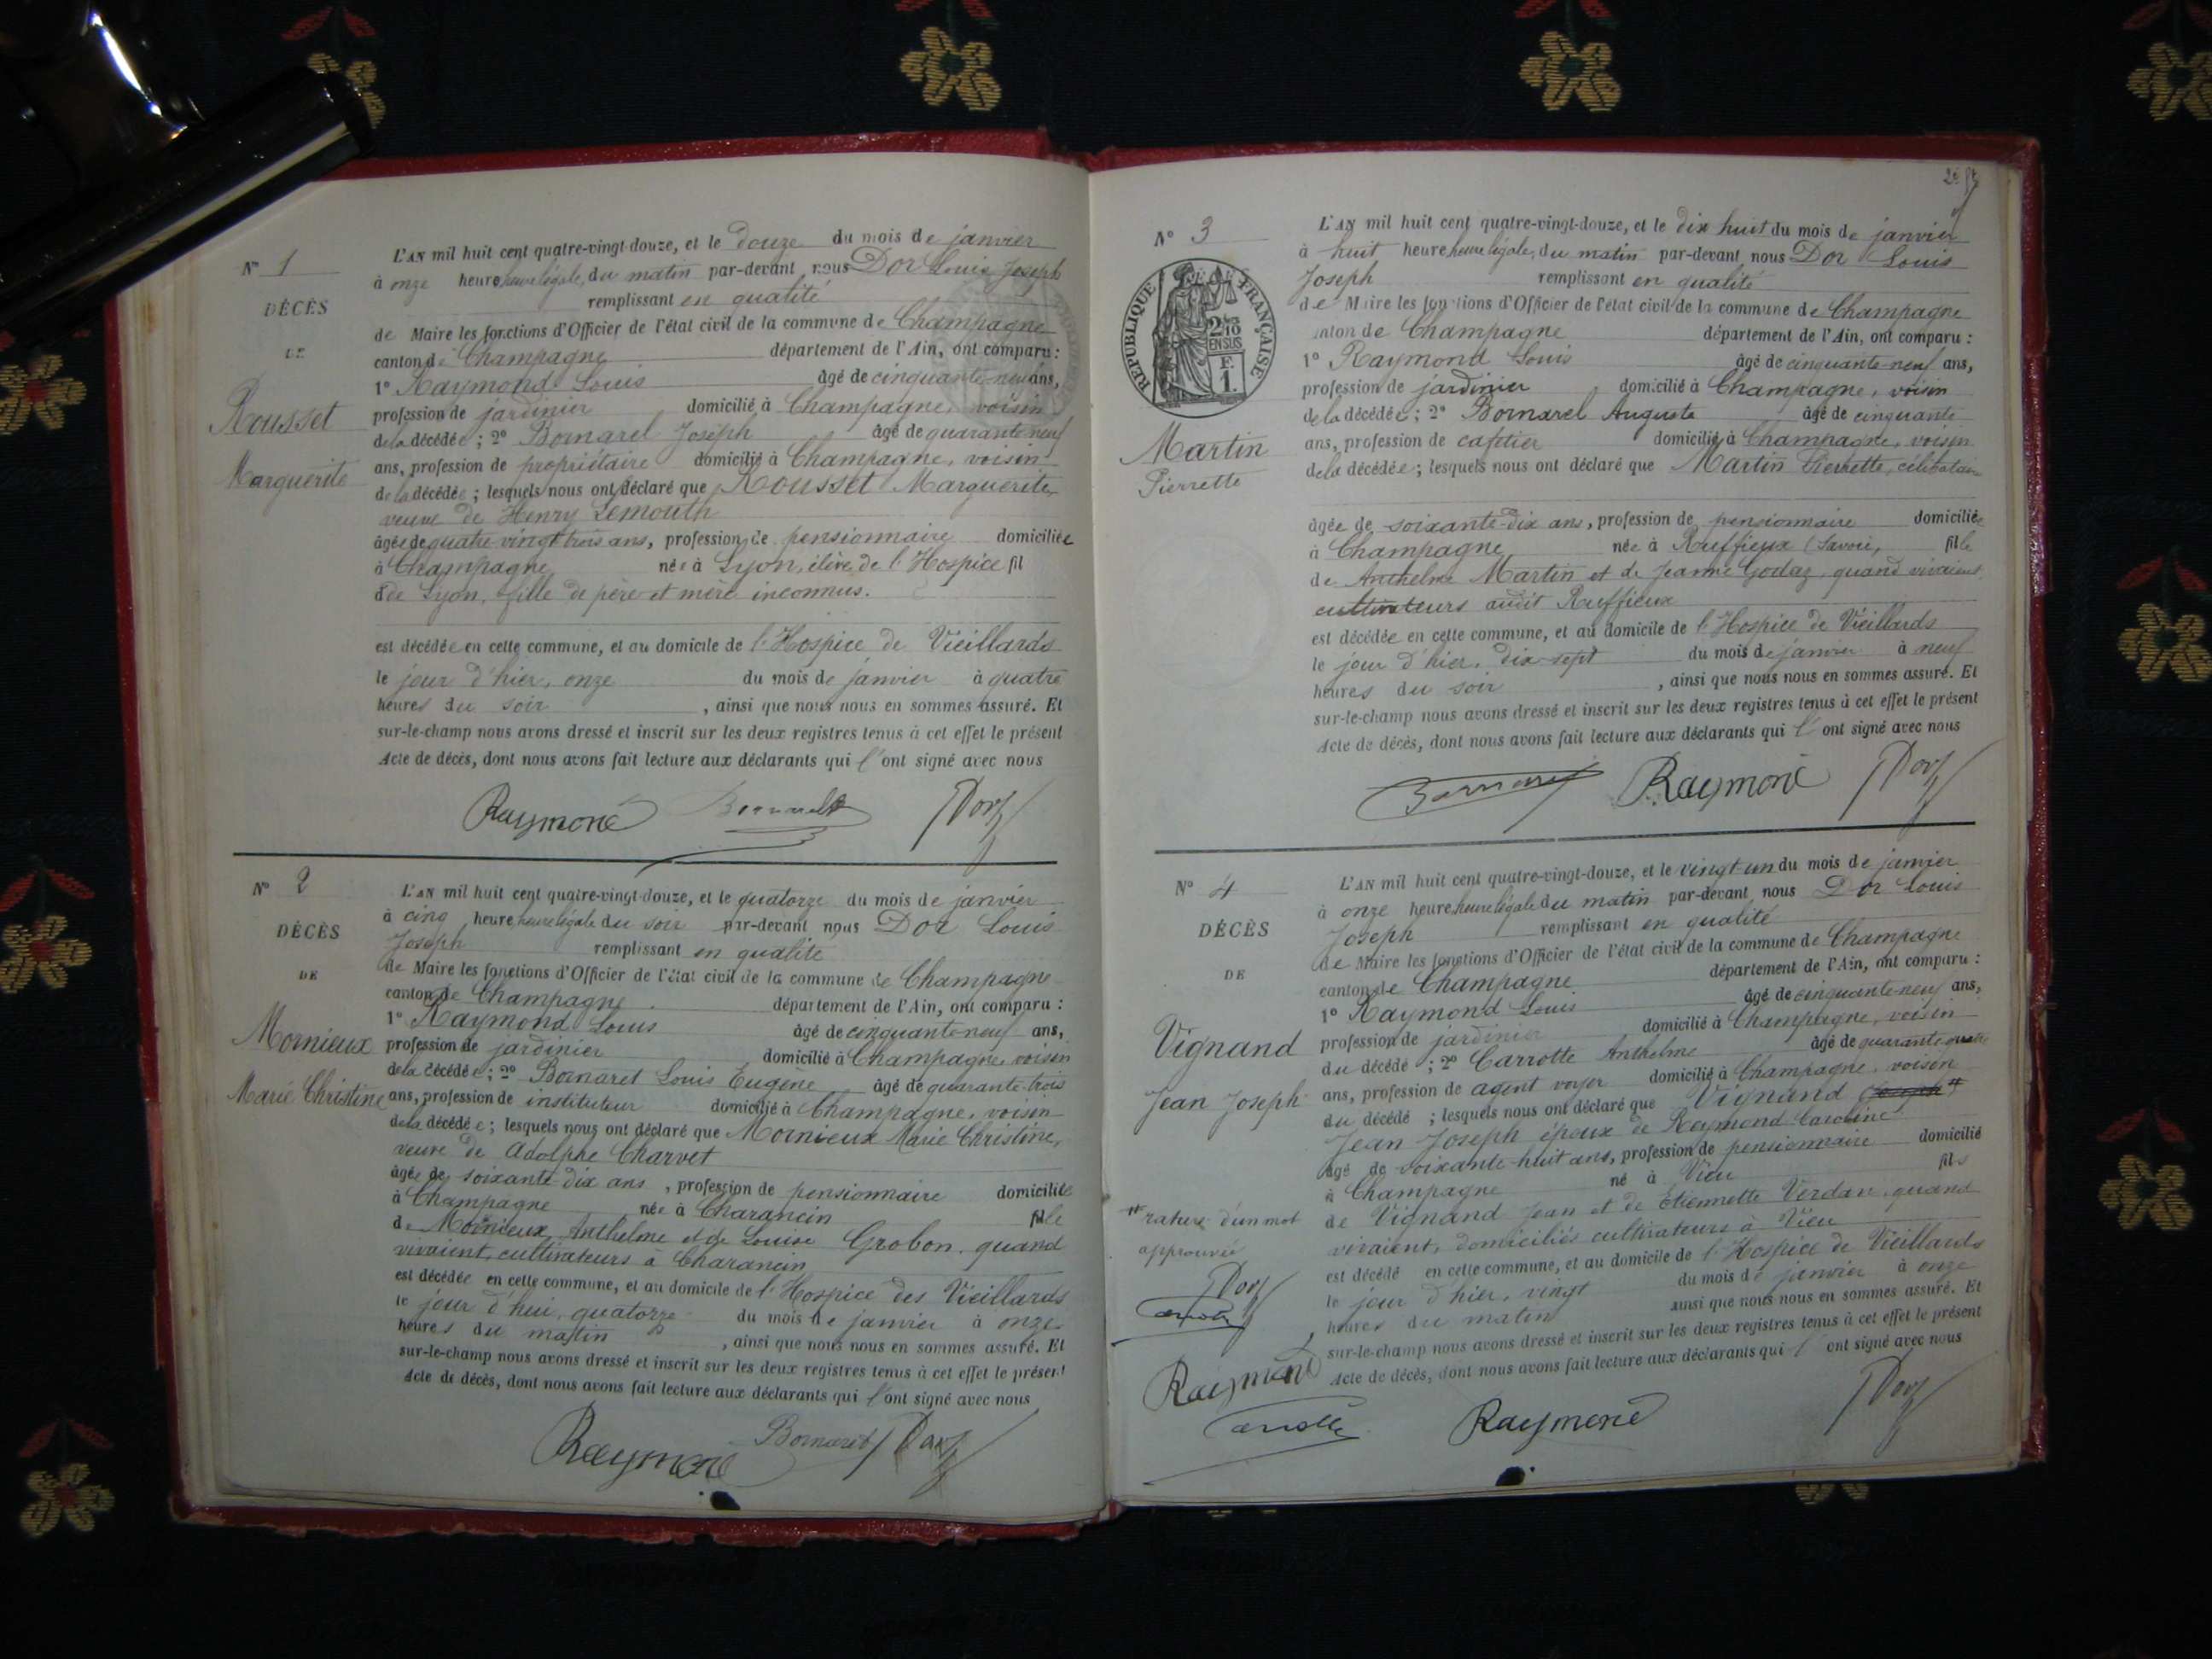 N° 1
DÉCÈS
DE
Rousset
Marguerite
L'AN mil huit cent quatre-vingt-douze, et le douze du mois de janvier
à onze heure heure légale, du matin par-devant nous Dor Louis Joseph
remplissant en qualité
de Maire les fonctions d'Officier de l'état civil de la commune de Champagne
canton de Champagne département de l'Ain, ont comparu :
1° Raymond Louis âgé de cinquante-neuf ans,
profession de jardinier domicilié à Champagne, voisin
de la décédée ; 2° Bornarel Joseph âgé de quarante-neuf
ans, profession de propriétaire domicilié à Champagne, voisin
de la décédée ; lesquels nous ont déclaré que Rousset Marguerite,
veuve de Henry Lemouth
âgée de quatre-vingt trois ans, profession de pensionnaire domiciliée
à Champagne née à Lyon, élève de l'Hospice fil
de Lyon, fille de père et mère inconnus.
est décédée en cette commune, et au domicile de l'Hospice de Vieillards
le jour d'hier, onze du mois de janvier à quatre
heures du soir , ainsi que nous nous en sommes assuré. Et
sur-le-champ nous avons dressé et inscrit sur les deux registres tenus à cet effet le présent
Acte de décès, dont nous avons fait lecture aux déclarants qui l'ont signé avec nous
Raymond Dor
N° 2
DÉCÈS
DE
Mornieux
Marie Christine
L'AN mil huit cent quatre-vingt-douze, et le quatorze du mois de janvier
à cinq heure heure légale du soir par-devant nous Dor Louis
Joseph remplissant en qualité
de Maire les fonctions d'Officier de l'état civil de la commune de Champagne
canton de Champagne département de l'Ain, ont comparu :
1° Raymond Louis âgé de cinquante-neuf ans,
profession de jardinier domicilié à Champagne, voisin
de la décédée ; 2° Bornarel Louis Eugène âgé de quarante-trois
ans, profession de instituteur domicilié à Champagne, voisin
de la décédée ; lesquels nous ont déclaré que Mornieux Marie Christine,
veuve de Adolphe Charvet
âgée de soixante-dix ans , profession de pensionnaire domiciliée
à Champagne née à Charancin fille
de Mornieux Anthelme et de Louise Grobon, quand
vivaient, cultivateurs à Charancin
est décédée en cette commune, et au domicile de l'Hospice des Vieillards
le jour d'hui, quatorze du mois de janvier à onze
heures du matin , ainsi que nous nous en sommes assuré. Et
sur-le-champ nous avons dressé et inscrit sur les deux registres tenus à cet effet le présent
Acte de décès, dont nous avons fait lecture aux déclarants qui l'ont signé avec nous
Raymond Bornarel Dor
N° 3
RÉPUBLIQUE FRANÇAISE
2/10 EN SUS
F. 1.
Martin
Pierrette
L'AN mil huit cent quatre-vingt-douze, et le dix huit du mois de janvier
à huit heure heure légale, du matin par-devant nous Dor Louis
Joseph remplissant en qualité
de Maire les fonctions d'Officier de l'état civil de la commune de Champagne
canton de Champagne département de l'Ain, ont comparu :
1° Raymond Louis âgé de cinquante-neuf ans,
profession de jardinier domicilié à Champagne, voisin
de la décédée ; 2° Bornarel Auguste âgé de cinquante
ans, profession de cafetier domicilié à Champagne, voisin
de la décédée ; lesquels nous ont déclaré que Martin Pierrette, célibataire
âgée de soixante-dix ans, profession de pensionnaire domiciliée
à Champagne née à Ruffieux (Savoie, fille
de Anthelme Martin et de Jeanne Godaz, quand vivaient
cultivateurs audit Ruffieux
est décédée en cette commune, et au domicile de l'Hospice de Vieillards
le jour d'hier, dix-sept du mois de janvier à neuf
heures du soir , ainsi que nous nous en sommes assuré. Et
sur-le-champ nous avons dressé et inscrit sur les deux registres tenus à cet effet le présent
Acte de décès, dont nous avons fait lecture aux déclarants qui l'ont signé avec nous
Bornarel Raymond Dor
N° 4
DÉCÈS
DE
Vignand
Jean Joseph
rature d'un mot
approuvée
Dor
Carrotte
Raymond
L'AN mil huit cent quatre-vingt-douze, et le vingt-un du mois de janvier
à onze heure heure légale du matin par-devant nous Dor Louis
Joseph remplissant en qualité
de Maire les fonctions d'Officier de l'état civil de la commune de Champagne
canton de Champagne département de l'Ain, ont comparu :
1° Raymond Louis âgé de cinquante-neuf ans,
profession de jardinier domicilié à Champagne, voisin
du décédé ; 2° Carrotte Anthelme âgé de quarante-quatre
ans, profession de agent voyer domicilié à Champagne, voisin
du décédé ; lesquels nous ont déclaré que Vignand
Jean Joseph époux de Raymond Caroline
âgé de soixante-huit ans, profession de pensionnaire domicilié
à Champagne né à Vieu fils
de Vignand Jean et de Etiennette Verdan, quand
vivaient, domiciliés cultivateurs à Vieu
est décédé en cette commune, et au domicile de l'Hospice de Vieillards
le jour d'hier, vingt du mois de janvier à onze
heures du matin , ainsi que nous nous en sommes assuré. Et
sur-le-champ nous avons dressé et inscrit sur les deux registres tenus à cet effet le présent
Acte de décès, dont nous avons fait lecture aux déclarants qui l'ont signé avec nous
Carrotte Raymond Dor